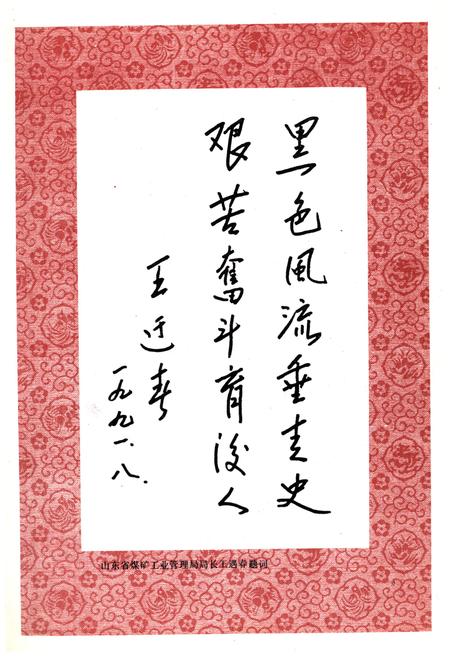 黑色風流垂青史
艰苦奮斗育後人
王遇春
一九九一、八、
山东省煤矿工业管理局局长王遇春题词